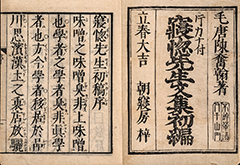 毛唐陳奮翰著
片カナ付
寢惚先生文集初編
立春大吉 朝寢房 梓
寢惚先生初稿序
味噌之味噌臭非上味噌
也學者之學者臭非真學
者也方今學者移居於品
川思濱漢土之裏店放